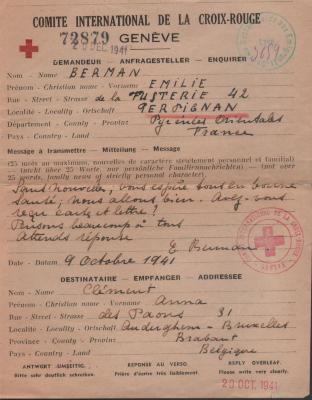 COMITÉ INTERNATIONAL DE LA CROIX-ROUGE
72879 GENÈVE
20 DEC. 1941
3659
DEMANDEUR — ANFRAGESTELLER — ENQUIRER
Nom - Name BERMAN
Prénom - Christian name - Vorname EMILIE
Rue - Street - Strasse de la FUSTERIE 42
Localité - Locality - Ortschaft PERPIGNAN
Département - County - Provinz Pyrénées Orientales
Pays - Country - Land France
Message à transmettre — Mitteilung — Message
(25 mots au maximum, nouvelles de caractère strictement personnel et familial)
— (nicht über 25 Worte, nur persönliche Familiennachrichten) — (not over
25 words, family news of strictly personal character).
Sans nouvelle, vous espère tous en bonne
santé, Nous allons bien. Avez-vous
reçu carte et lettre?
Pensons beaucoup à tous
Attends réponse
E Berman
Date - Datum 9 Octobre 1941
DESTINATAIRE — EMPFANGER — ADDRESSEE
Nom - Name Clément
Prénom - Christian name - Vorname Anna
Rue - Street - Strasse des Paons 31
Localité - Locality - Ortschaft Auderghem - Bruxelles
Province - County - Provinz Brabant
Pays - Country - Land Belgique
ANTWORT UMSEITIG. RÉPONSE AU VERSO. REPLY OVERLEAF.
Bitte sehr deutlich schreiben. Prière d'écrire très lisiblement. Please write very clearly.
20 OCT. 1941